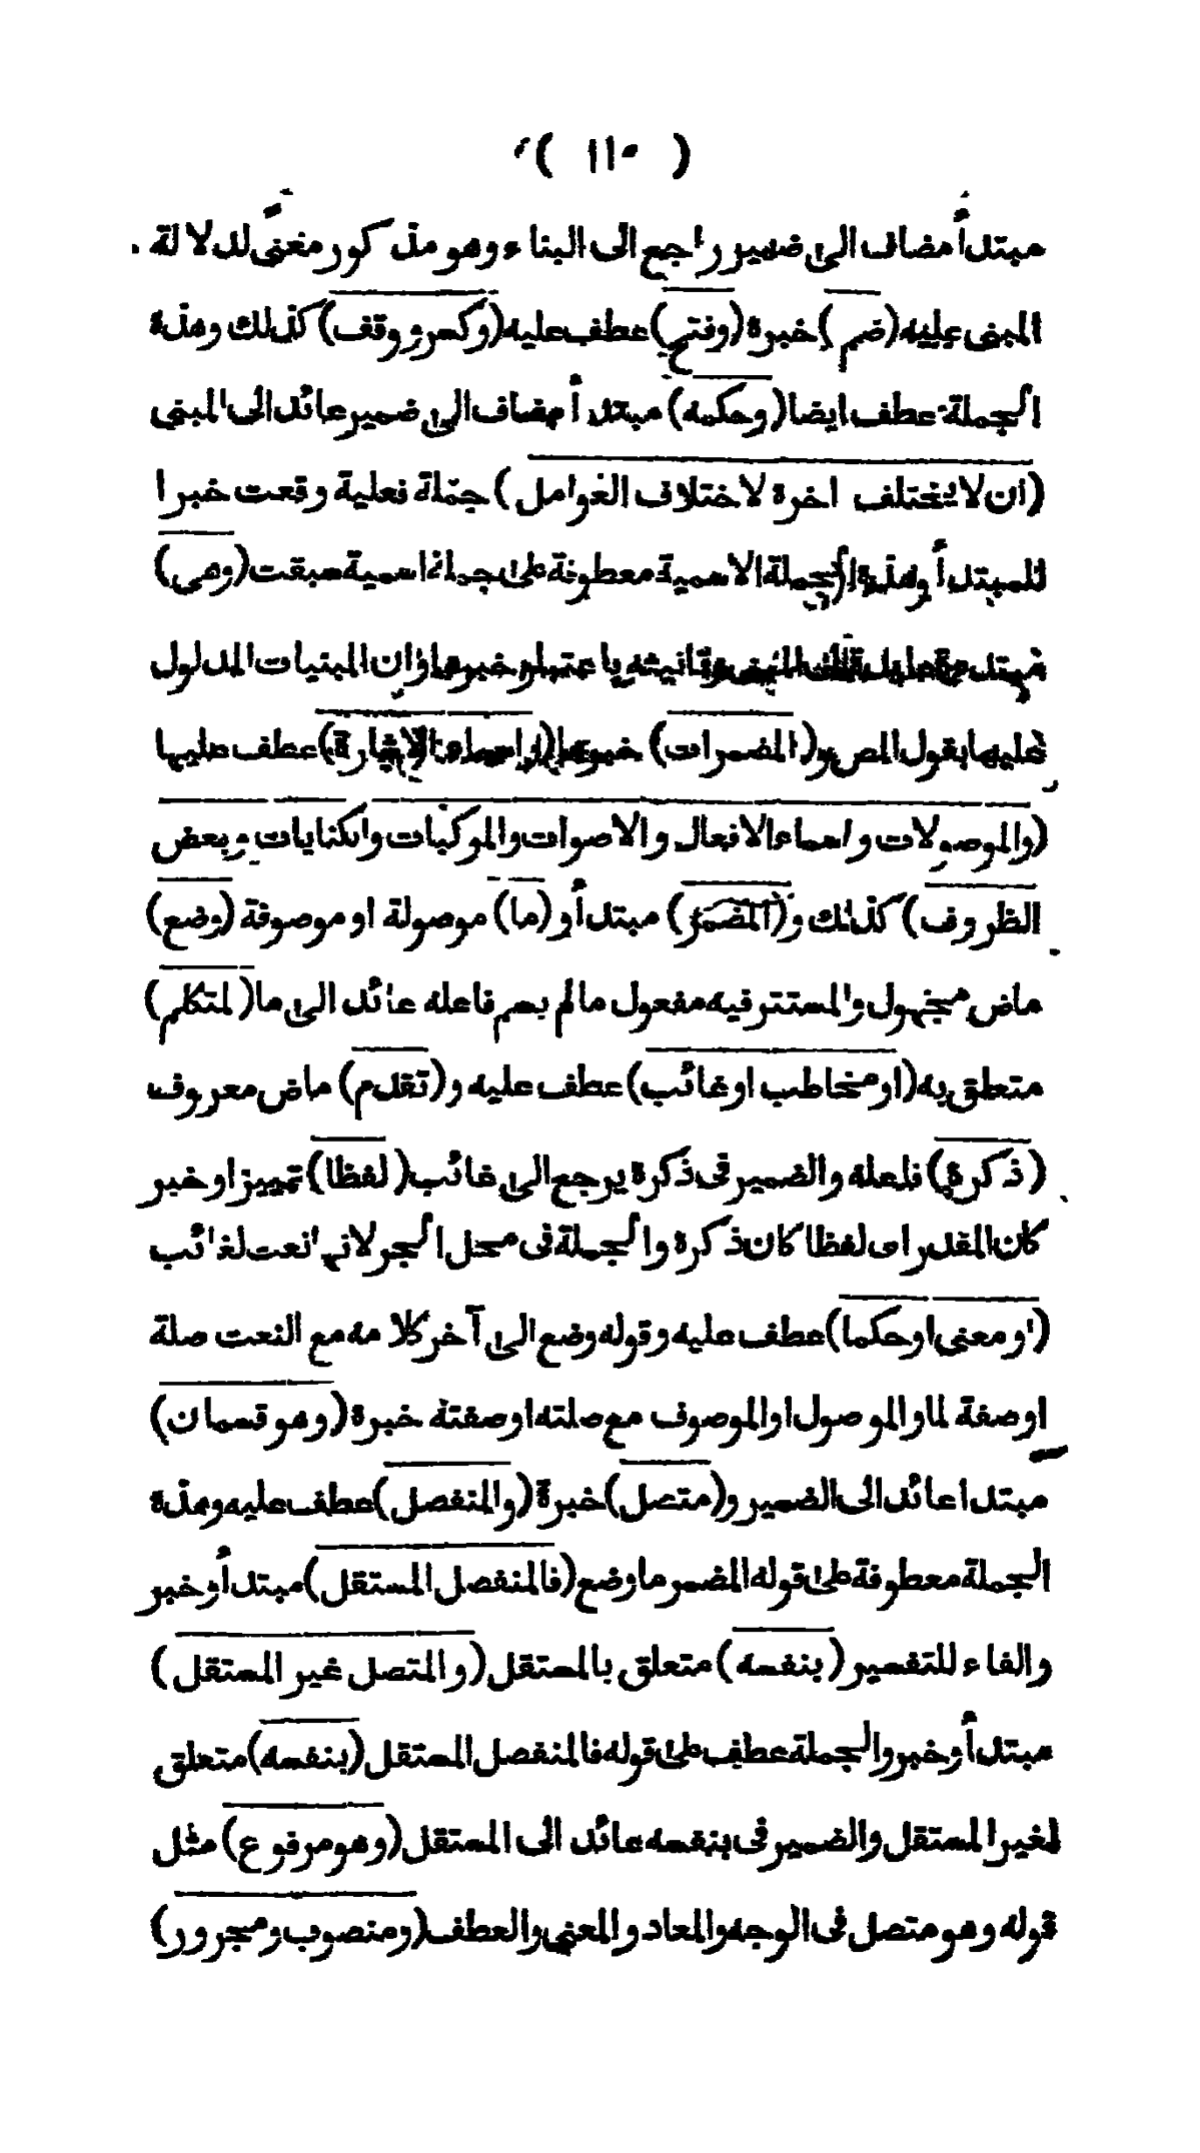 ( ١١٠ )
مبتدأ مضاف الى ضمير راجع الى البناء وهو مذكور معنىً لدلالة
المبنى عليه (ضم) خبرة (وفتح) عطف عليه (وكسر ووقف) كذلك وهذة
الجملة عطف ايضا (وحكمه) مبتدأ مضاف الى ضمير عائد الى المبنى
(ان لا يختلف اخرة لاختلاف العوامل) جملة فعلية وقعت خبرا
للمبتدأ وهذة الجملة الاسمية معطوفة على جملة اسمية سبقت (وهى)
مبتدأ وتانيثه باعتبار خبرها وان المبنيات المدلول
عليها بقول المص و (المضمرات) خبرها (واسماء الاشارة) عطف عليها
(والموصولات واسماء الافعال والاصوات والمركبات والكنايات وبعض
الظروف) كذلك و (المضمر) مبتدأ و (ما) موصولة او موصوفة (وضع)
ماض مجهول والمستتر فيه مفعول مالم يسم فاعله عائد الى ما (لمتكلم)
متعلق به (او مخاطب او غائب) عطف عليه و (تقدم) ماض معروف
(ذكرة) فاعله والضمير فى ذكرة يرجع الى غائب (لفظا) تمييز او خبر
كان المقدر اى لفظا كان ذكرة والجملة فى محل الجر لانها نعت لغائب
(او معنى او حكما) عطف عليه وقوله وضع الى آخر كلامه مع النعت صلة
او صفة لما والموصول او الموصوف مع صلته او صفته خبرة (وهو قسمان)
مبتدا عائد الى الضمير و (متصل) خبرة (والمنفصل) عطف عليه وهذة
الجملة معطوفة على قوله المضمر ما وضع (فالمنفصل المستقل) مبتدأ وخبر
والفاء للتفسير (بنفسه) متعلق بالمستقل (والمتصل غير المستقل)
مبتدأ وخبر والجملة عطف على قوله فالمنفصل المستقل (بنفسه) متعلق
لغير المستقل والضمير فى بنفسه عائد الى المستقل (وهو مرفوع) مثل
قوله وهو متصل فى الوجه والمعاد والمعنى والعطف (ومنصوب ومجرور)